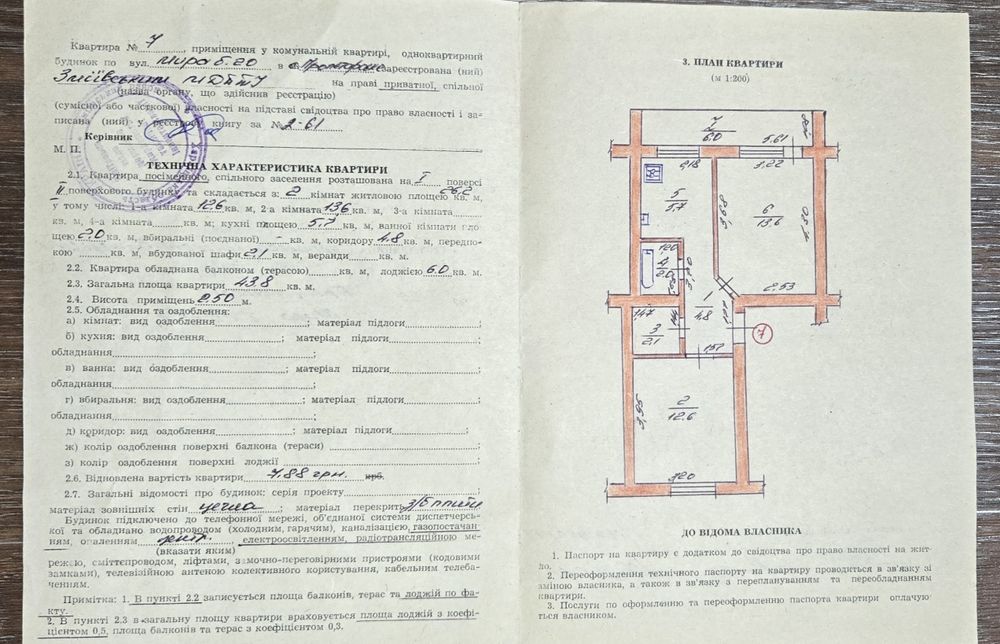 Квартира № 7, приміщення у комунальній квартирі, одноквартирний
будинок по вул. Мира б.20 в зареєстрована (ний)
Зміївським МДБТІ на праві приватної, спільної
(назва органу, що здійснив реєстрацію)
(сумісної або часткової) власності на підставі свідоцтва про право власності і за-
писана (ний) у реєстрову книгу за № 2-61
Керівник
М. П.
ТЕХНІЧНА ХАРАКТЕРИСТИКА КВАРТИРИ
2.1. Квартира посімейного, спільного заселення розташована на I поверсі
II поверхового будинку та складається з: 2 кімнат житловою площею 26.2 кв. м,
у тому числі: 1-а кімната 12.6 кв. м, 2-а кімната 13.6 кв. м, 3-а кімната
кв. м, 4-а кімната кв. м; кухні площею 5.7 кв. м, ванної кімнати пло-
щею 2.0 кв. м, вбиральні (поєднаної) - кв. м, коридору 4.8 кв. м, передпо-
кою кв. м, вбудованої шафи 2.1 кв. м, веранди кв. м.
2.2. Квартира обладнана балконом (терасою) кв. м, лоджією 6.0 кв. м.
2.3. Загальна площа квартири 43.8 кв. м.
2.4. Висота приміщень 2.50 м.
2.5. Обладнання та оздоблення:
а) кімнат: вид оздоблення ; матеріал підлоги ;
б) кухня: вид оздоблення ; матеріал підлоги ;
обладнання ;
в) ванна: вид оздоблення ; матеріал підлоги ;
обладнання ;
г) вбиральня: вид оздоблення ; матеріал підлоги ;
обладнання ;
д) коридор: вид оздоблення ; матеріал підлоги ;
ж) колір оздоблення поверхні балкона (тераси) ;
з) колір оздоблення поверхні лоджії ;
2.6. Відновлена вартість квартири 788 грн. крб.
2.7. Загальні відомості про будинок: серія проекту ;
матеріал зовнішніх стін цегла ; матеріал перекрить з/б плити
Будинок підключено до телефонної мережі, об'єднаної системи диспетчерсь-
кої та обладнано водопроводом (холодним, гарячим), каналізацією, газопостачан-
ням, опаленням центр. , електроосвітленням, радіотрансляційною ме-
(вказати яким)
режею, сміттєпроводом, ліфтами, замочно-переговорними пристроями (кодовими
замками), телевізійною антеною колективного користування, кабельним телеба-
ченням.
Примітка: 1. В пункті 2.2 записується площа балконів, терас та лоджій по фа-
кту.
2. В пункті 2.3 в загальну площу квартири враховується площа лоджій з коефі-
цієнтом 0,5, площа балконів та терас з коефіцієнтом 0,3.
3. ПЛАН КВАРТИРИ
(м 1:200)
7
6.0
5.61
2.18
3.22
5
5.7
6
13.6
1.20
4
2.0
2.53
1
4.8
1.47
3
2.1
7
1.57
2
12.6
3.55
3.20
ДО ВІДОМА ВЛАСНИКА
1. Паспорт на квартиру є додатком до свідоцтва про право власності на жит-
ло.
2. Переоформлення технічного паспорту на квартиру проводиться в зв'язку зі
зміною власника, а також в зв'язку з переплануванням та переобладнанням
квартири.
3. Послуги по оформленню та переоформленню паспорта квартири оплачую-
ться власником.